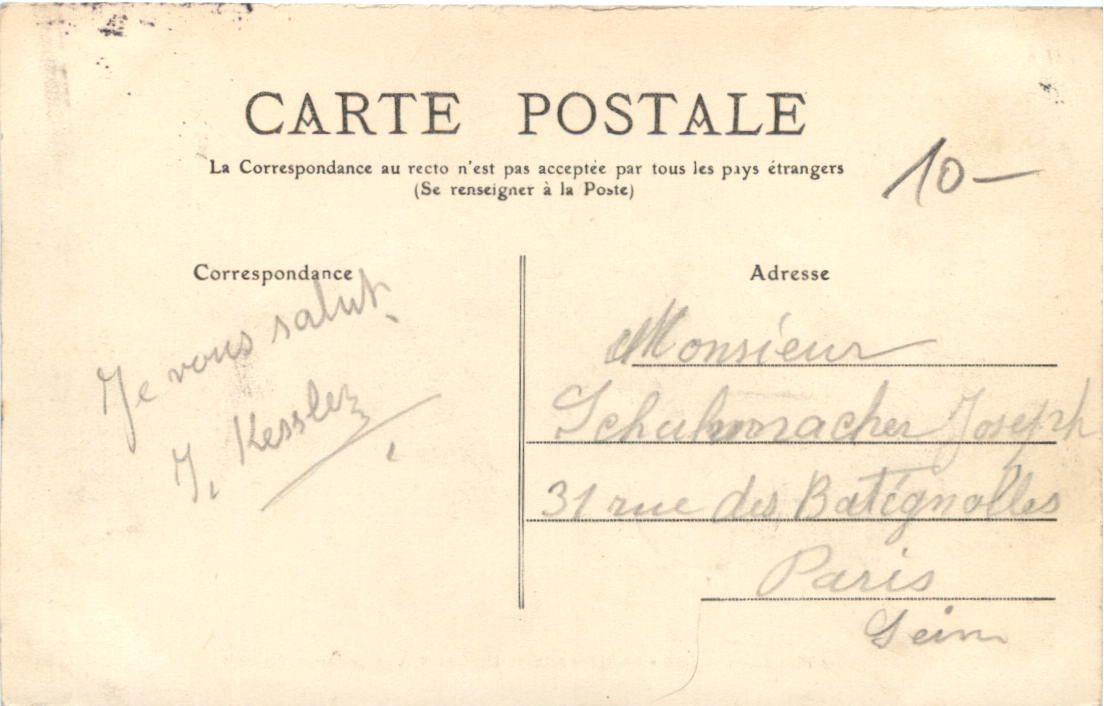 CARTE POSTALE
La Correspondance au recto n'est pas acceptée par tous les pays étrangers
(Se renseigner à la Poste)
10-
Correspondance
Je vous salut.
J. Kessler
Adresse
Monsieur
Joseph
31 rue des Batégnolles
Paris
Sein